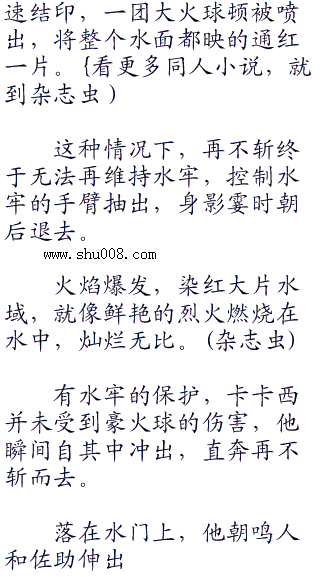 速结印，一团大火球顿被喷
出，将整个水面都映的通红
一片。{看更多同人小说，就
到杂志虫）
这种情况下，再不斩终
于无法再维持水牢，控制水
牢的手臂抽出，身影霎时朝
后退去。
www.shu008.com
火焰爆发，染红大片水
域，就像鲜艳的烈火燃烧在
水中，灿烂无比。(杂志虫)
有水牢的保护，卡卡西
并未受到豪火球的伤害，他
瞬间自其中冲出，直奔再不
斩而去。
落在水门上，他朝鸣人
和佐助伸出